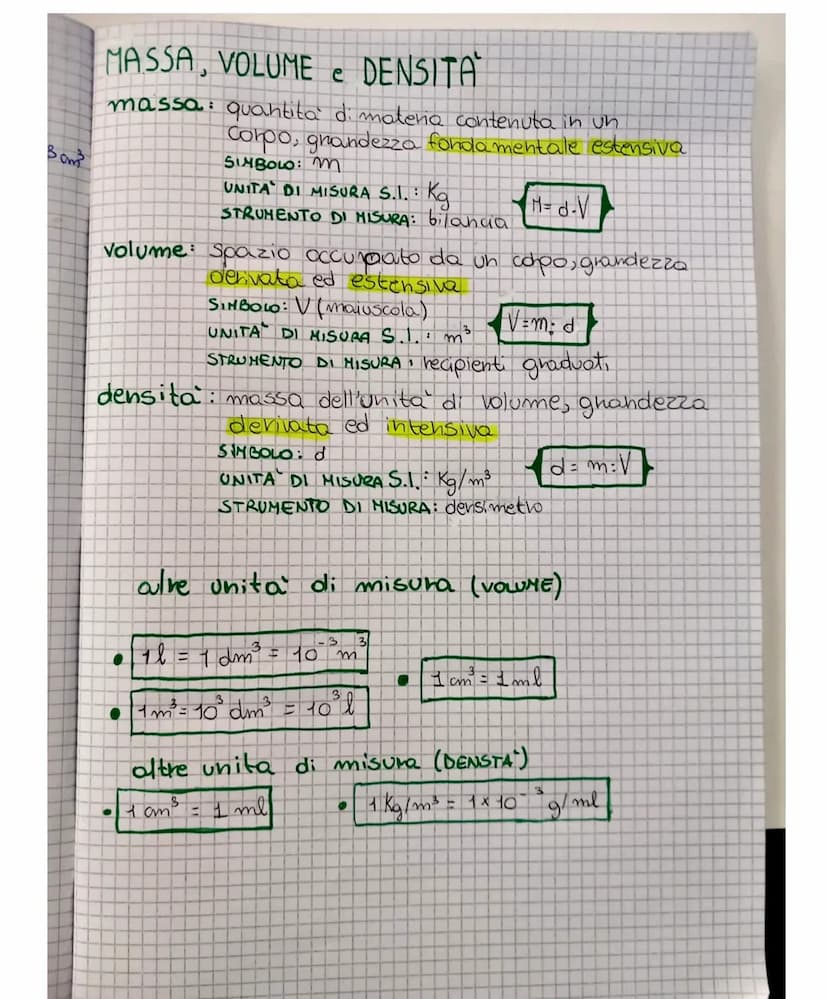 MASSA, VOLUME e DENSITÀ
massa: quantità di materia contenuta in un
corpo, grandezza fondamentale estensiva
3 cm³
SIMBOLO: m
UNITÀ DI MISURA S.I.: Kg
M= d·V
STRUMENTO DI MISURA: bilancia
volume: spazio occupato da un corpo, grandezza
derivata ed estensiva
SIMBOLO: V (maiuscola)
V=m: d
UNITÀ DI MISURA S.I.: m³
STRUMENTO DI MISURA: recipienti graduati
densità: massa dell'unità di volume, grandezza
derivata ed intensiva
SIMBOLO: d
d= m:V
UNITÀ DI MISURA S.I.: Kg/m³
STRUMENTO DI MISURA: densimetro
altre unità di misura (VOLUME)
1l = 1 dm³ = 10⁻³ m³
1 cm³ = 1 ml
1m³= 10³ dm³ = 10³ l
altre unita di misura (DENSTA')
1 cm³ = 1 ml
1 Kg/m³ = 1×10⁻³ g/ml